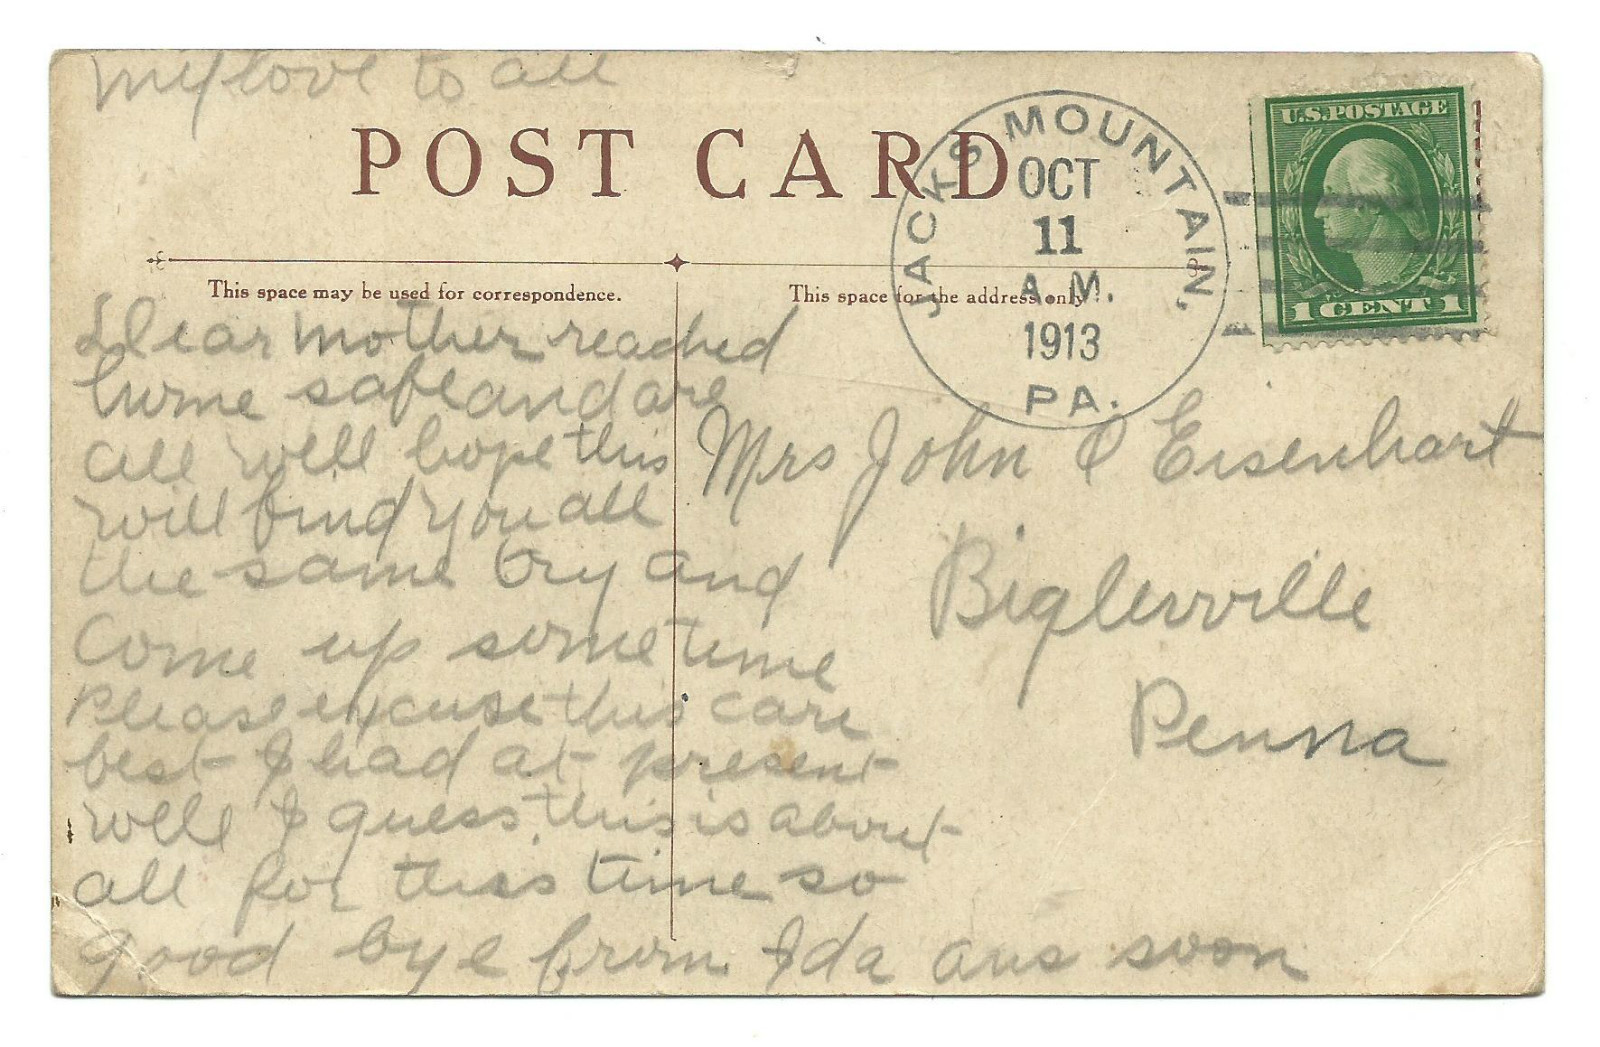 my love to all
POST CARD
JACKS MOUNTAIN,
OCT
11
A.M.
1913
PA.
U.S.POSTAGE
1 CENT 1
This space may be used for correspondence.
This space for the address only.
Dear Mother reached
hume safe and are
all well hope this
will find you all
the same try and
come up sometime
Please excuse this care
best I had at present
well I guess this is about
all for this time so
good bye from Ida ans soon
Mrs John C Eisenhart
Biglerville
Penna